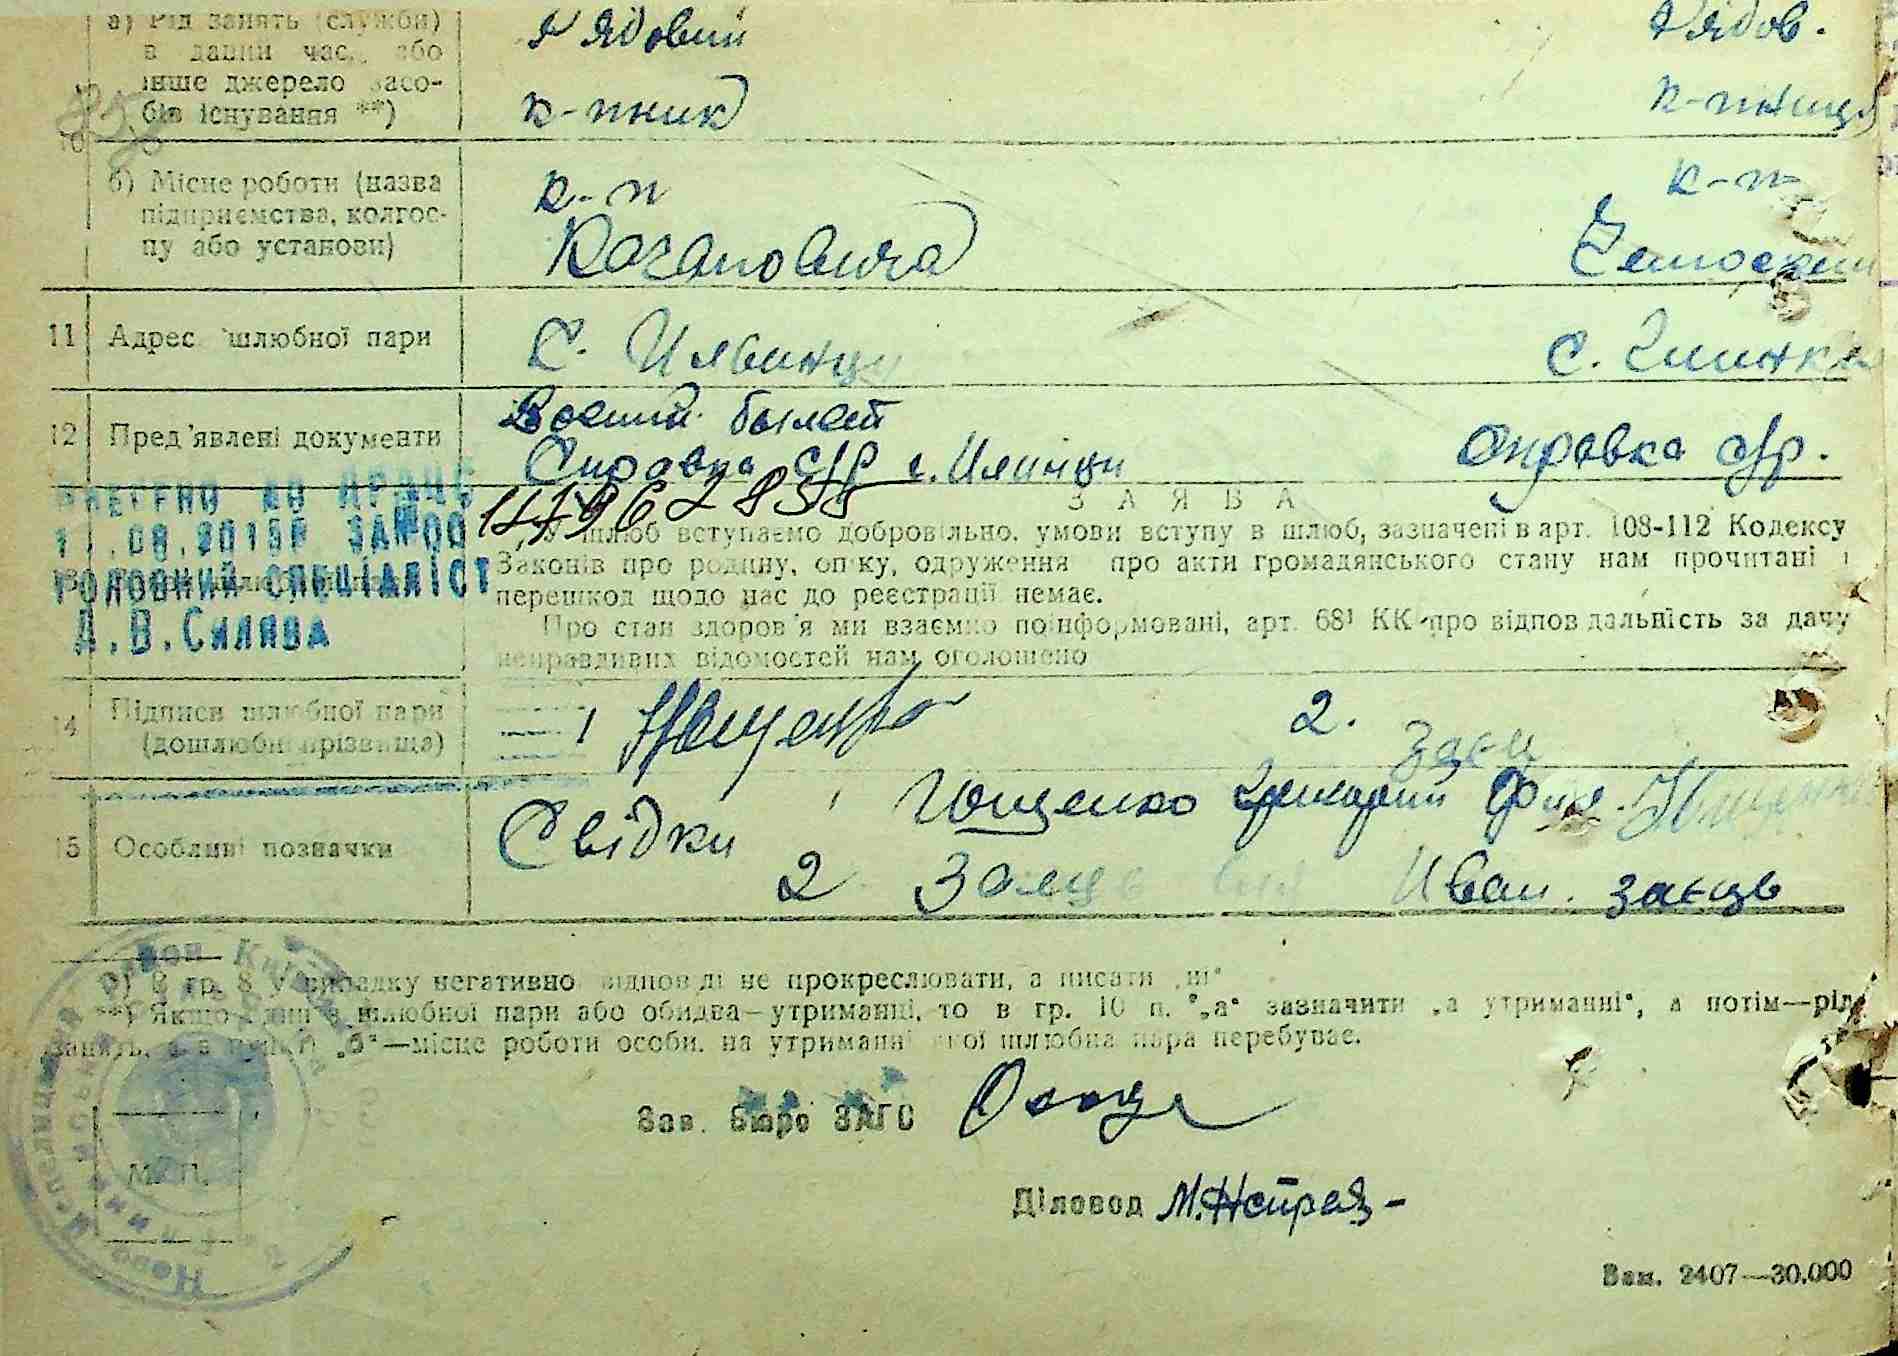 а) Рід занять (служби) Рядовий Рядов.
в даний час, або
інше джерело засо-
бів існування **) к-пник к-пниця
10
б) Місце роботи (назва к-п к-п
підприємства, колгос-
пу або установи) Кагановича
11 Адрес шлюбної пари С. Илвинци с.
12 Пред'явлені документи Военний билет
Справка с/р с. Илинци Справка с/р.
ВНЕСЕНО ДО ДРАЦС
ЗА №00 1479962855
ГОЛОВНИЙ СПЕЦІАЛІСТ
Д.В.Силява
ЗАЯВА
У шлюб вступаємо добровільно, умови вступу в шлюб, зазначені в арт. 108-112 Кодексу
Законів про родину, опіку, одруження про акти громадянського стану нам прочитані і
перешкод щодо нас до реєстрації немає.
Про стан здоров'я ми взаємно поінформовані, арт. 68¹ КК про відповідальність за дачу
неправдивих відомостей нам оголошено
14 Підписи шлюбної пари 1 2. Заєц
(дошлюбні прізвища)
15 Особливі позначки Свідки 1 Ющенко
2 Заець Иван. заєць
*) В гр. 8 у випадку негативної відповіді не прокреслювати, а писати „ні“
**) Якщо один з шлюбної пари або обидва—утриманці, то в гр. 10 п. „а“ зазначити „а утриманні“, а потім—рід
занять, а в пункті „б“—місце роботи особи, на утриманні якої шлюбна пара перебуває.
Зав. Бюро ЗАГС
М. П.
Діловод
Зам. 2407—30.000